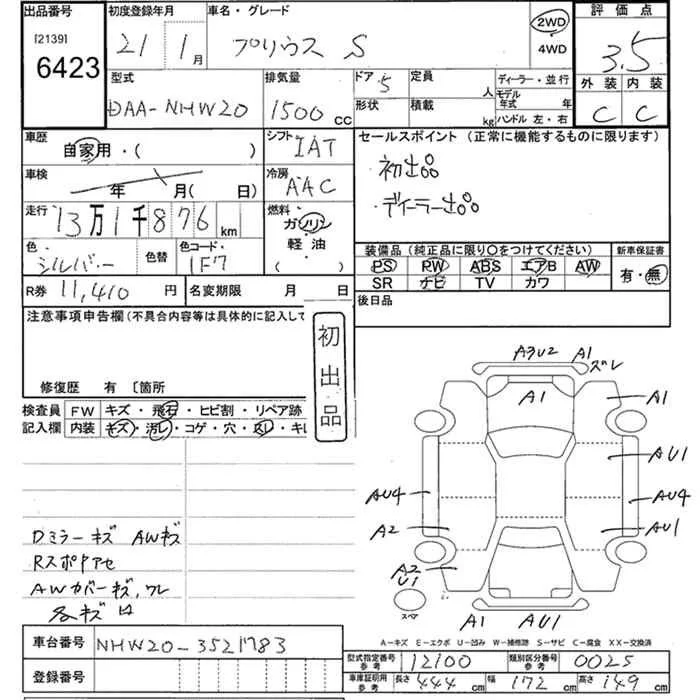 出品番号 初度登録年月 車名・グレード 評価点
[2139] 21 1月 プリウス S 2WD 3.5
6423 4WD
外装 内装
型式 排気量 ドア 5 定員 人 ディーラー・並行
モデル年式 年
DAA-NHW20 1500 cc 形状 積載 kg ハンドル 左・右 C C
車歴 自家用・( ) シフト IAT セールスポイント (正常に機能するものに限ります)
初出品
車検 年 月( 日) 冷房 AAC
・ディーラー出品
走行 13万1千876 km 燃料 ガソリン
軽油
( )
色・ シルバー 色替 色コード・ 1F7
装備品 (純正品に限り○をつけてください) 新車保証書
PS PW ABS エアB AW 有・無
SR ナビ TV カワ
R券 11,410 円 名変期限 月 日 後日品
注意事項申告欄 (不具合内容等は具体的に記入して
初出品
修復歴 有 〔箇所
検査員 FW キズ・飛石・ヒビ割・リペア跡
記入欄 内装 キズ・汚レ・コゲ・穴・スレ・キレ
A3U2 A1 ズレ
A1 A1
AU1
AU4 AU4
A2 AU1
A2
U1
スペア
A1 AU1
Dミラーキズ AWキズ
Rスポドアセ
AWカバーキズ,ワレ
各キズ凹
A-キズ E-エクボ U-凹み W-補修跡 S-サビ C-腐食 XX-交換済
車台番号 NHW20-3521783
型式指定番号 参考 12100 類別区分番号 参考 0025
登録番号
車庫証明用 参考 長さ 444 cm 幅 172 cm 高さ 149 cm